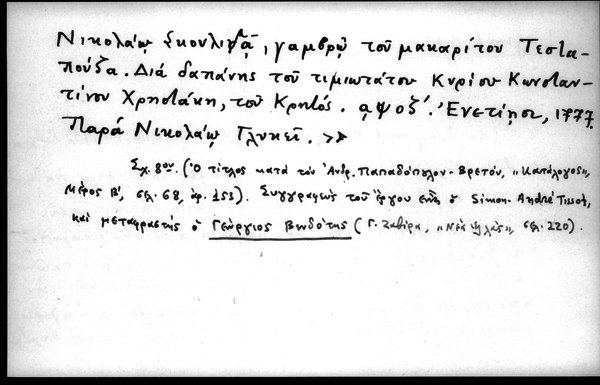 Νικολάῳ Σκουλιδᾷ, γαμβρῷ τοῦ μακαρίτου Τεστα-
πούζα. Διά δαπάνης τοῦ τιμιωτάτου Κυρίου Κωνσταν-
τίνου Χρηστάκη, τοῦ Κρητός. αψοζ´. Ἐνετίησι, 1777.
Παρά Νικολάῳ Γλυκεῖ. >>
Σχ. 8ον. (Ὁ τίτλος κατά τόν Ἀνδρ. Παπαδόπουλον - Βρετόν, "Κατάλογος",
Μέρος Β´, σελ. 68, ἀρ. 153). Συγγραφεύς τοῦ ἔργου εἶναι ὁ Simon-André Tissot,
καί μεταφραστής ὁ Γεώργιος Βενδότης (Γ. Ζαβίρα, "Νέα Ἑλλάς", σελ. 220).